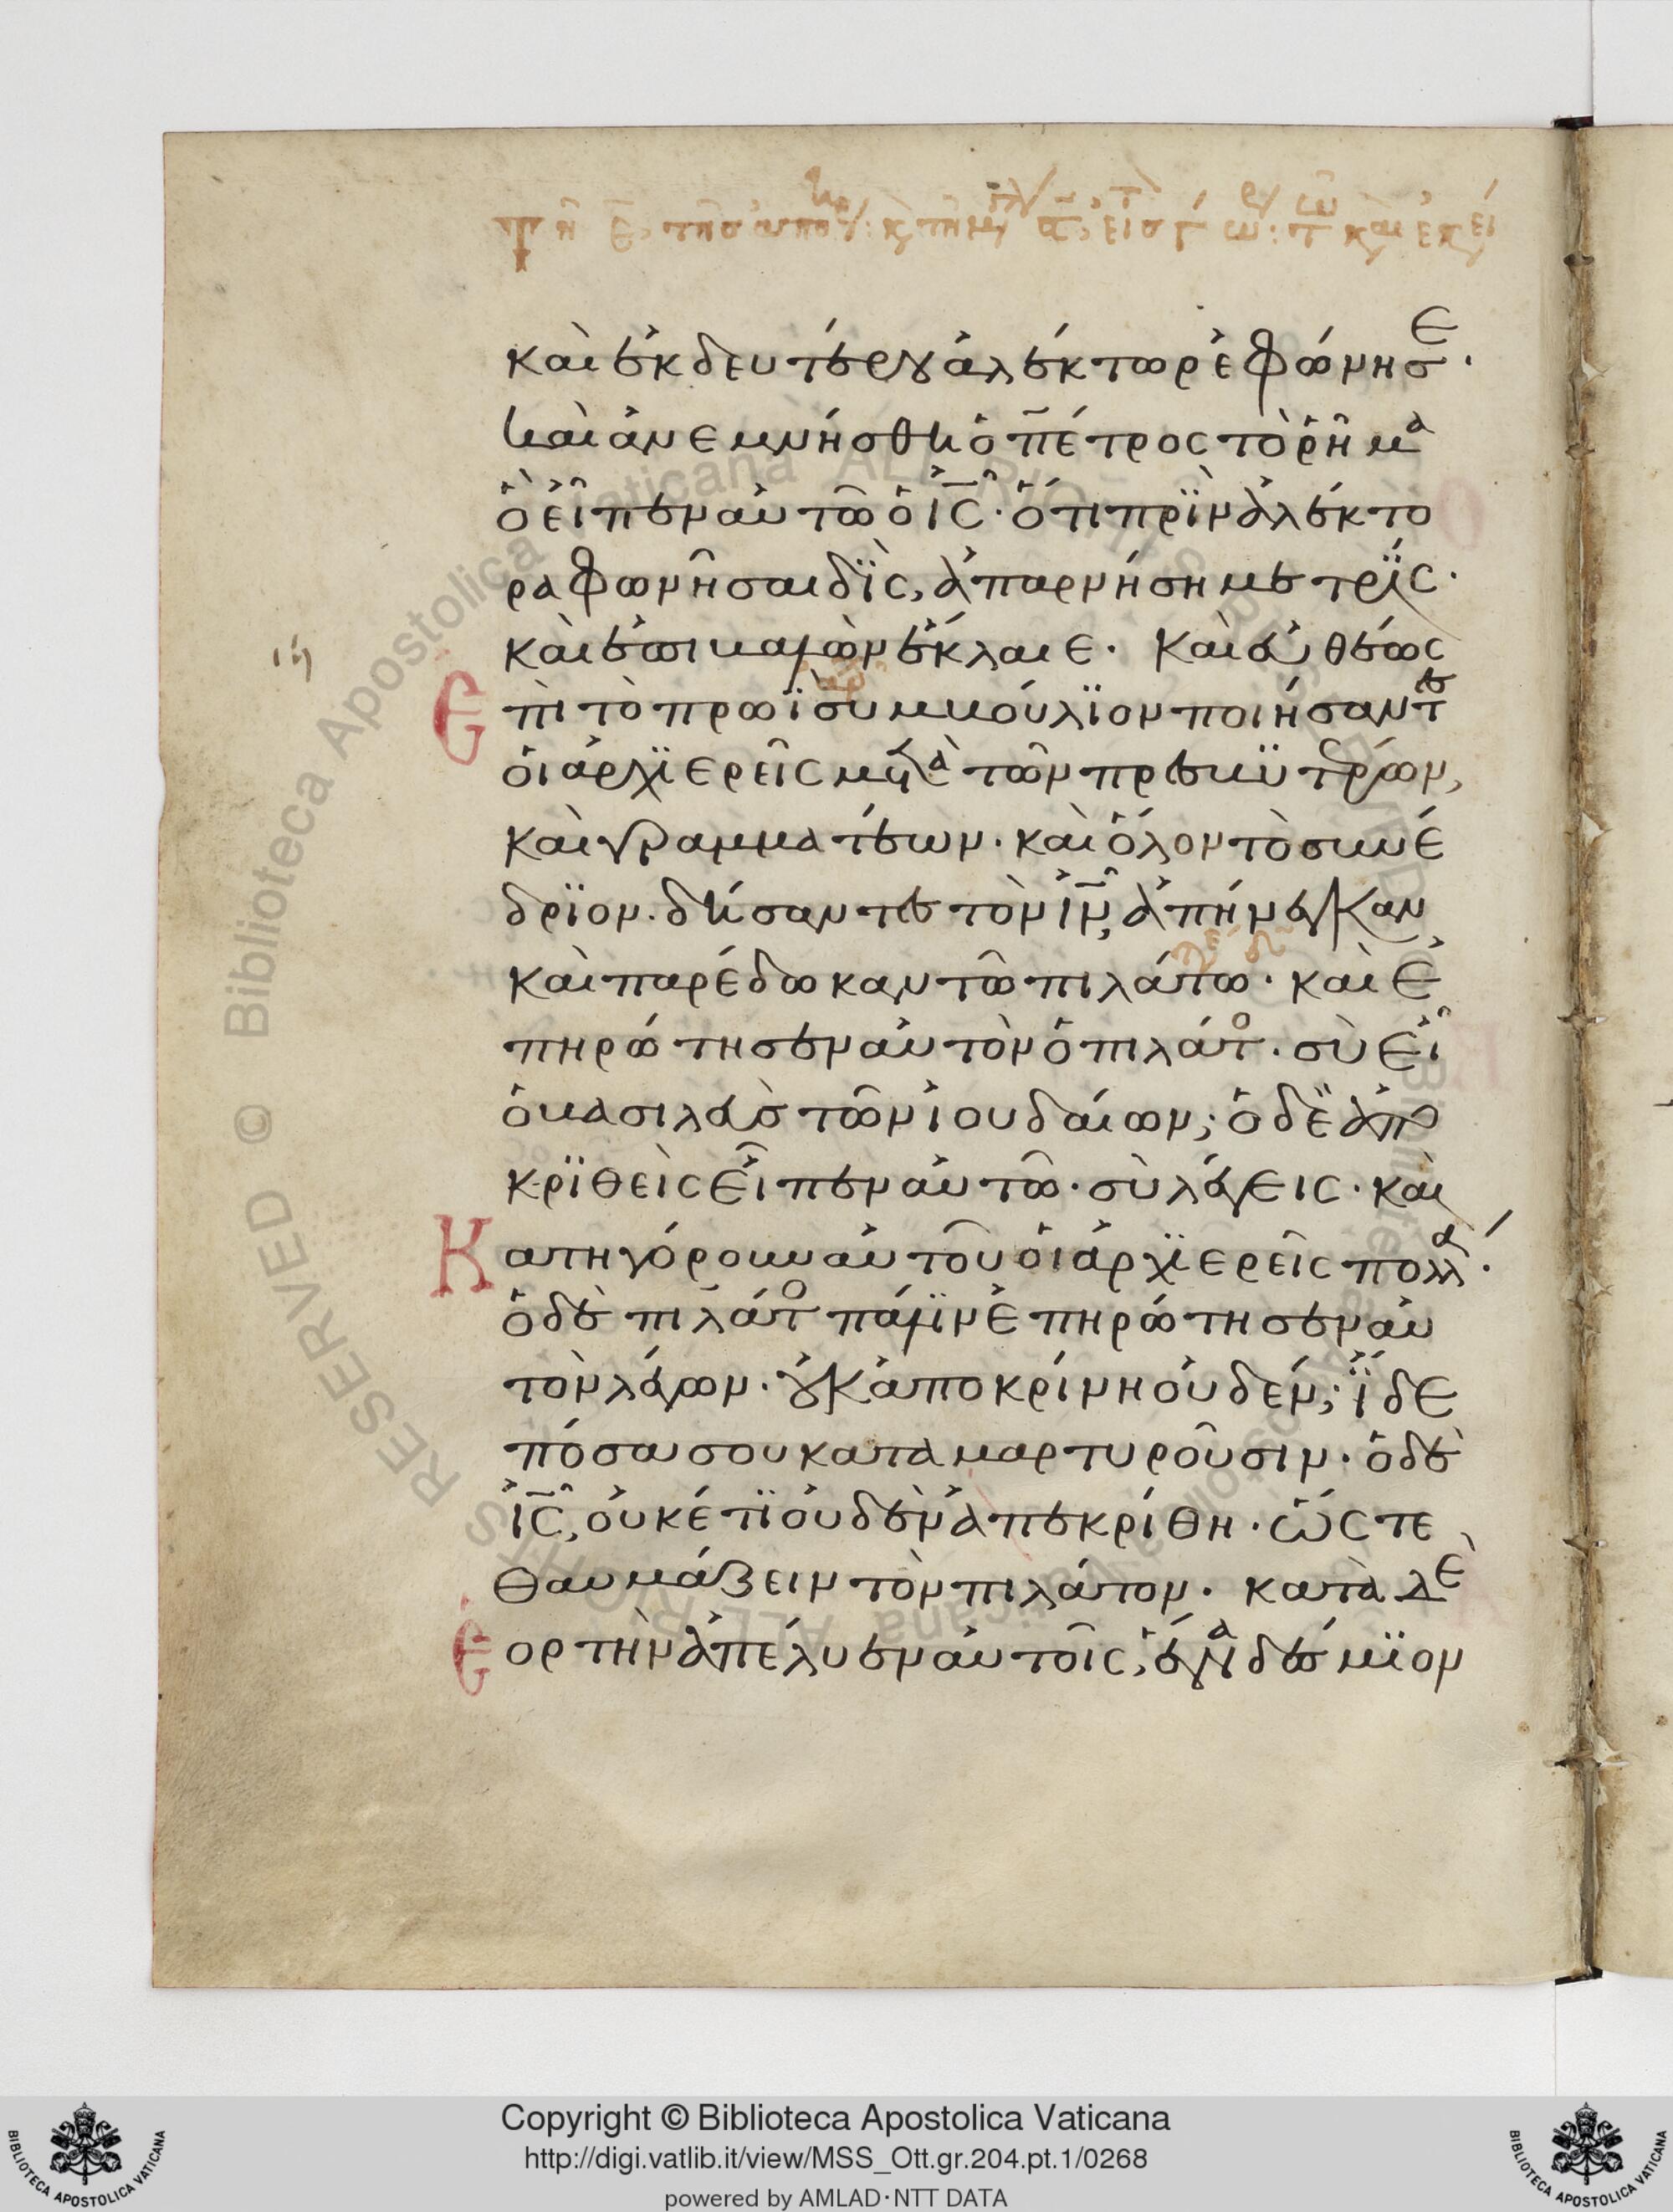 καὶ ἐκ δευτέρου ἀλέκτωρ ἐφώνησε·
καὶ ἀνεμνήσθη ὁ πέτρος τὸ ῥῆμα
ὃ εἶπεν αὐτῶ ὁ ἰς· ὅτι πρϊν ἀλέκτο
ρα φωνῆσαι δϊς, ἀπαρνήση με τρϊς·
καὶ ἐπιβαλὼν ἔκλαιε· Καὶ εὐθέως
ἐπὶ τὸ πρωϊ συμβούλϊον ποιήσαντες
οἱ ἀρχϊερεῖς μετὰ τῶν πρεσβϋτέρων,
καὶ γραμματέων· καὶ ὅλον τὸ συνέ
δρϊον· δήσαντες τὸν ἰν, ἀπήνεγκαν
καὶ παρέδωκαν τῶ πιλάτω· καὶ ἐ
πηρώτησεν αὐτὸν ὁ πιλάτος· σὺ εἶ
ὁ βασιλεὺς τῶν ἰουδαίων; ὁ δὲ ἀπο
κρϊθεὶς εἶπεν αὐτῶ· σὺ λέγεις· καὶ
Κατηγόρουν αὐτοῦ οἱ ἀρχϊερεῖς πολλά·
ὁ δὲ πιλάτος πάλϊν ἐπηρώτησεν αὐ
τὸν λέγων· οὐκ ἀποκρίνη οὐδέν; ἴδε
πόσα σου καταμαρτυροῦσιν· ὁ δὲ
ἰς, οὐκέτϊ οὐδὲν ἀπεκρίθη· ὥςτε
θαυμάζειν τὸν πιλάτον· κατὰ δὲ
ἑορτὴν ἀπέλυεν αὐτοῖς, ἕνα δέσμϊον
© Biblioteca Apostolica Vaticana ALL RIGHTS RESERVED
BIBLIOTECA APOSTOLICA VATICANA
Copyright © Biblioteca Apostolica Vaticana
http://digi.vatlib.it/view/MSS_Ott.gr.204.pt.1/0268
powered by AMLAD·NTT DATA
BIBLIOTECA APOSTOLICA VATICANA